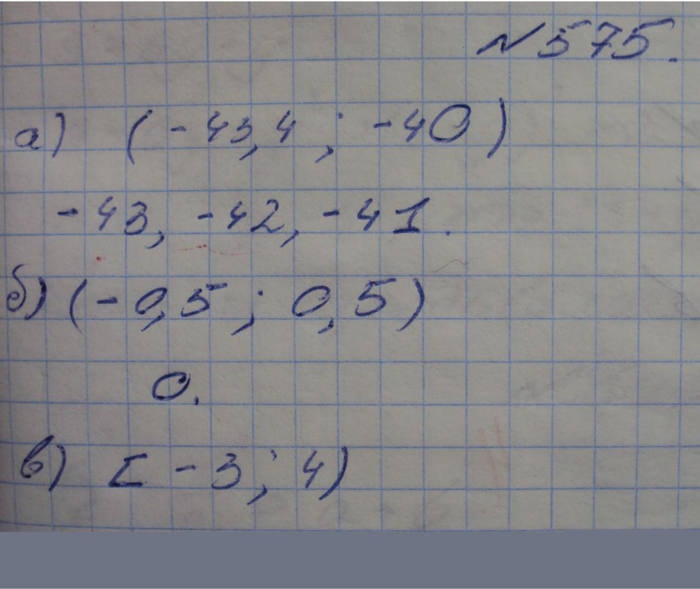 № 575.
а) (-43,4 ; -40)
-43, -42, -41.
б) (-0,5 ; 0,5)
0.
в) [-3; 4)